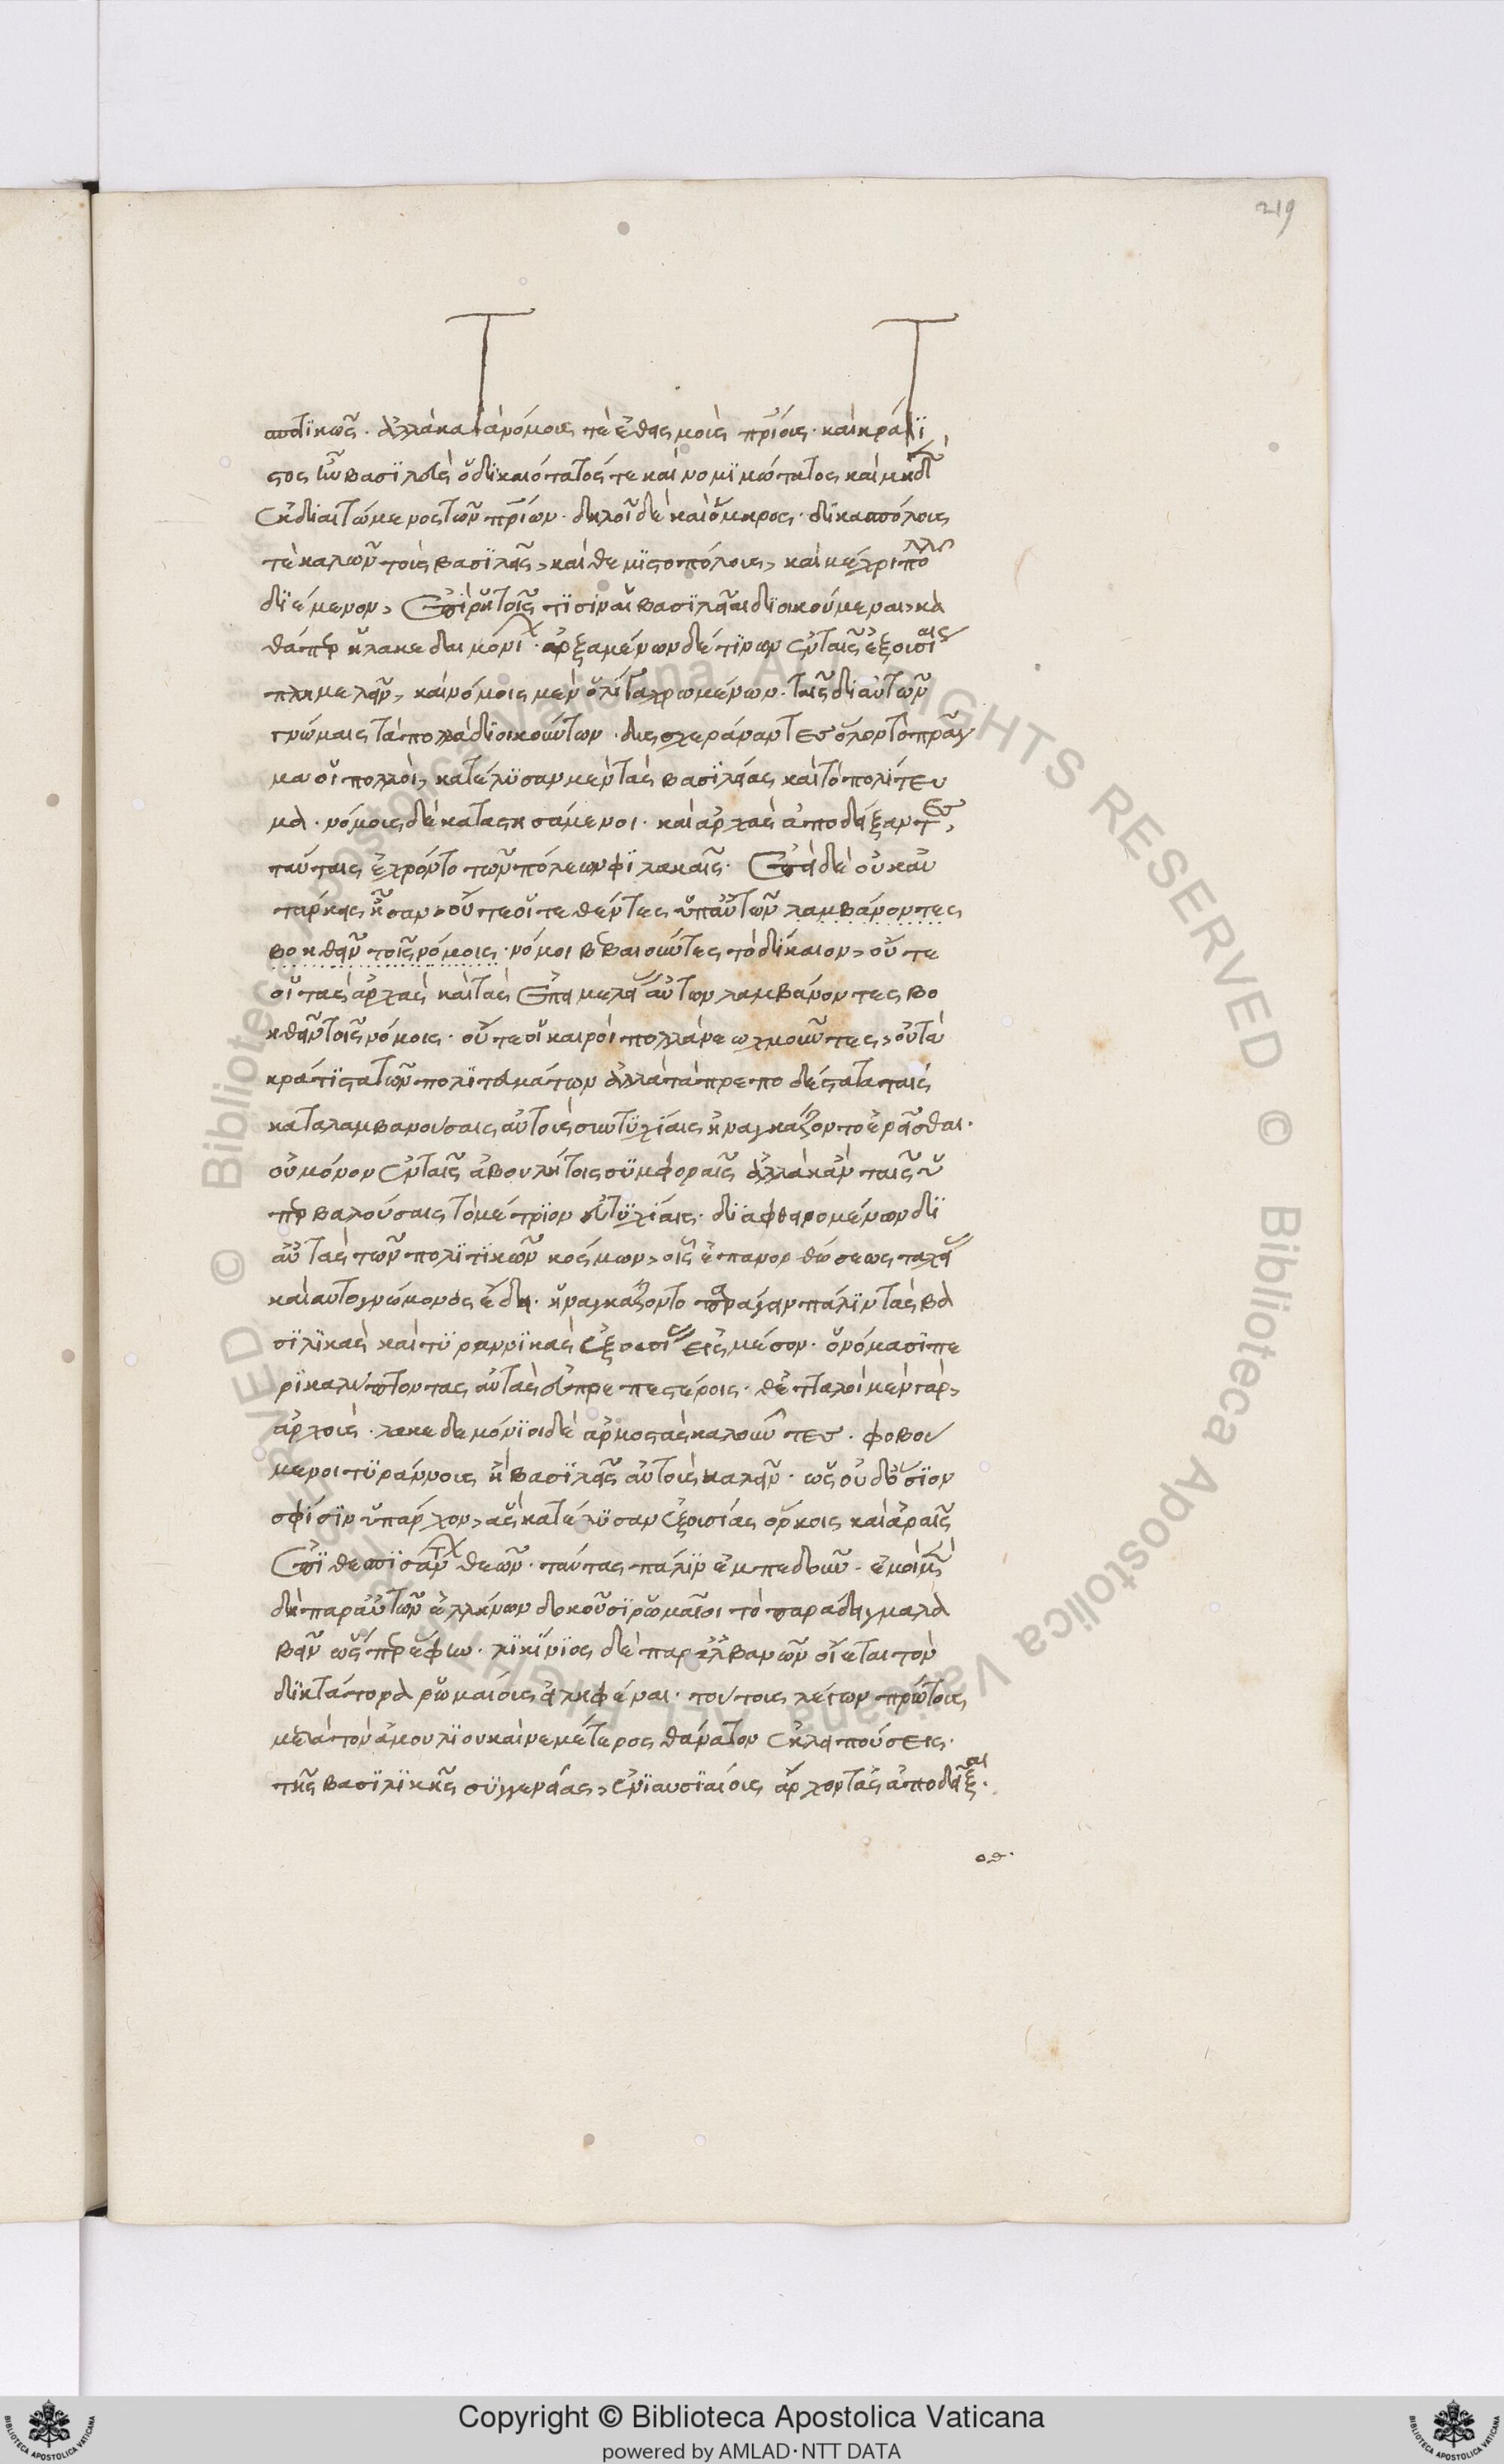 219
ποτικῶς. ἀλλὰ κατὰ νόμους τὲ ἐθησμοὺς πρίους. καὶ κράτι
στος ἦν βασιλεὺς ὁ δικαιότατός τε καὶ νομιμώτατος καὶ μηδὲν
ἐκδιαιτώμενος τῶν πρίων. δηλοῖ δὲ καὶ ὅμηρος. δικασπόλους
τὲ καλῶν τοὺς βασιλεῖς, καὶ θεμιστοπόλους, καὶ μέχρι πολλοῦ
διέμενον, ἐπὶ ῥητοῖς τισὶν αἱ βασιλεῖαι διοικούμεναι, κα
θάπερ ἡ λακεδαιμονίων. ἀρξαμένων δέ τινων ἐν ταῖς ἐξουσίαις
πλημελεῖν, καὶ νόμοις μὲν ὀλίγα χρωμένων. ταῖς δὲ αὐτῶν
γνώμαις τὰ πολλὰ διοικούντων. δυσχεράναντες ὅλον τὸ πρᾶγ
μα οἱ πολλοὶ, κατέλυσαν μὲν τὰς βασιλείας καὶ τὸ πολίτευ
μα. νόμους δὲ καταστησάμενοι. καὶ ἀρχὰς ἀποδείξαντες,
ταύταις ἐχρῶντο τῶν πόλεων φυλακαῖς. ἐπεὶ δὲ οὐκ αὐ
τάρκεις ἦσαν, οὔτε οἱ τεθέντες ὑπ' αὐτῶν λαμβάνοντες
βοηθεῖν τοῖς νόμοις. νόμοι βεβαιοῦντες τὸ δίκαιον, οὔτε
οἱ τὰς ἀρχὰς καὶ τὰς ἐπιμελείας αὐτῶν λαμβάνοντες βο
ηθεῖν τοῖς νόμοις. οὔτε οἱ καιροὶ πολλὰ νεωχμοῦντες, οὐ τὰ
κράτιστα τῶν πολιτευμάτων ἀλλὰ τὰ πρεπωδέστατα ταῖς
καταλαμβανούσαις αὐτοὺς συντυχίαις ἠναγκάζοντο ἐρᾶσθαι.
οὐ μόνον ἐν ταῖς ἀβουλήτοις συμφοραῖς ἀλλὰ κἀν ταῖς ὑ
περβαλούσαις τὸ μέτριον εὐτυχίαις. διαφθειρομένων δι
αὐτὰς τῶν πολιτικῶν κόσμων, οἷς ἐπανορθώσεως ταχείας
καὶ αὐτογνώμονος ἔδει. ἠναγκάζοντο παράγειν πάλιν τὰς βα
σιλικὰς καὶ τυραννικὰς ἐξουσίας εἰς μέσον. ὀνόμασι πε
ρικαλύπτοντας αὐτὰς εὐπρεπεστέροις. θετταλοὶ μὲν γὰρ,
ἀρχοὺς. λακεδεμόνιοι δὲ ἁρμοστὰς καλοῦντες. φοβού
μενοι τυράννους ἢ βασιλεῖς αὐτοὺς καλεῖν. ὡς οὐδ' ὅσιον
σφίσιν ὑπάρχον, ἃς κατέλυσαν ἐξουσίας ὅρκοις καὶ ἀραῖς
ἐπιθεσπισάντων θεῶν. ταύτας πάλιν ἐμπεδοῦν. ἐμοὶ μὲν
δὴ παρ' αὐτῶν ἑλλήνων δοκοῦσι ῥωμαῖοι τὸ παράδειγμα λα
βεῖν ὥσπερ ἔφην. λικίνιος δὲ παρ' ἀλβανῶν οἴεται τὸν
δικτάτορα ῥωμαίους εἰληφέναι. τούτους λέγων πρώτους
μετὰ τὸν ἀμουλίου καὶ νεμέτερος θάνατον ἐκλειπούσεις.
τῆς βασιλικῆς συγγενείας, ἐνιαυσιαίους ἄρχοντας ἀποδεῖξαι.